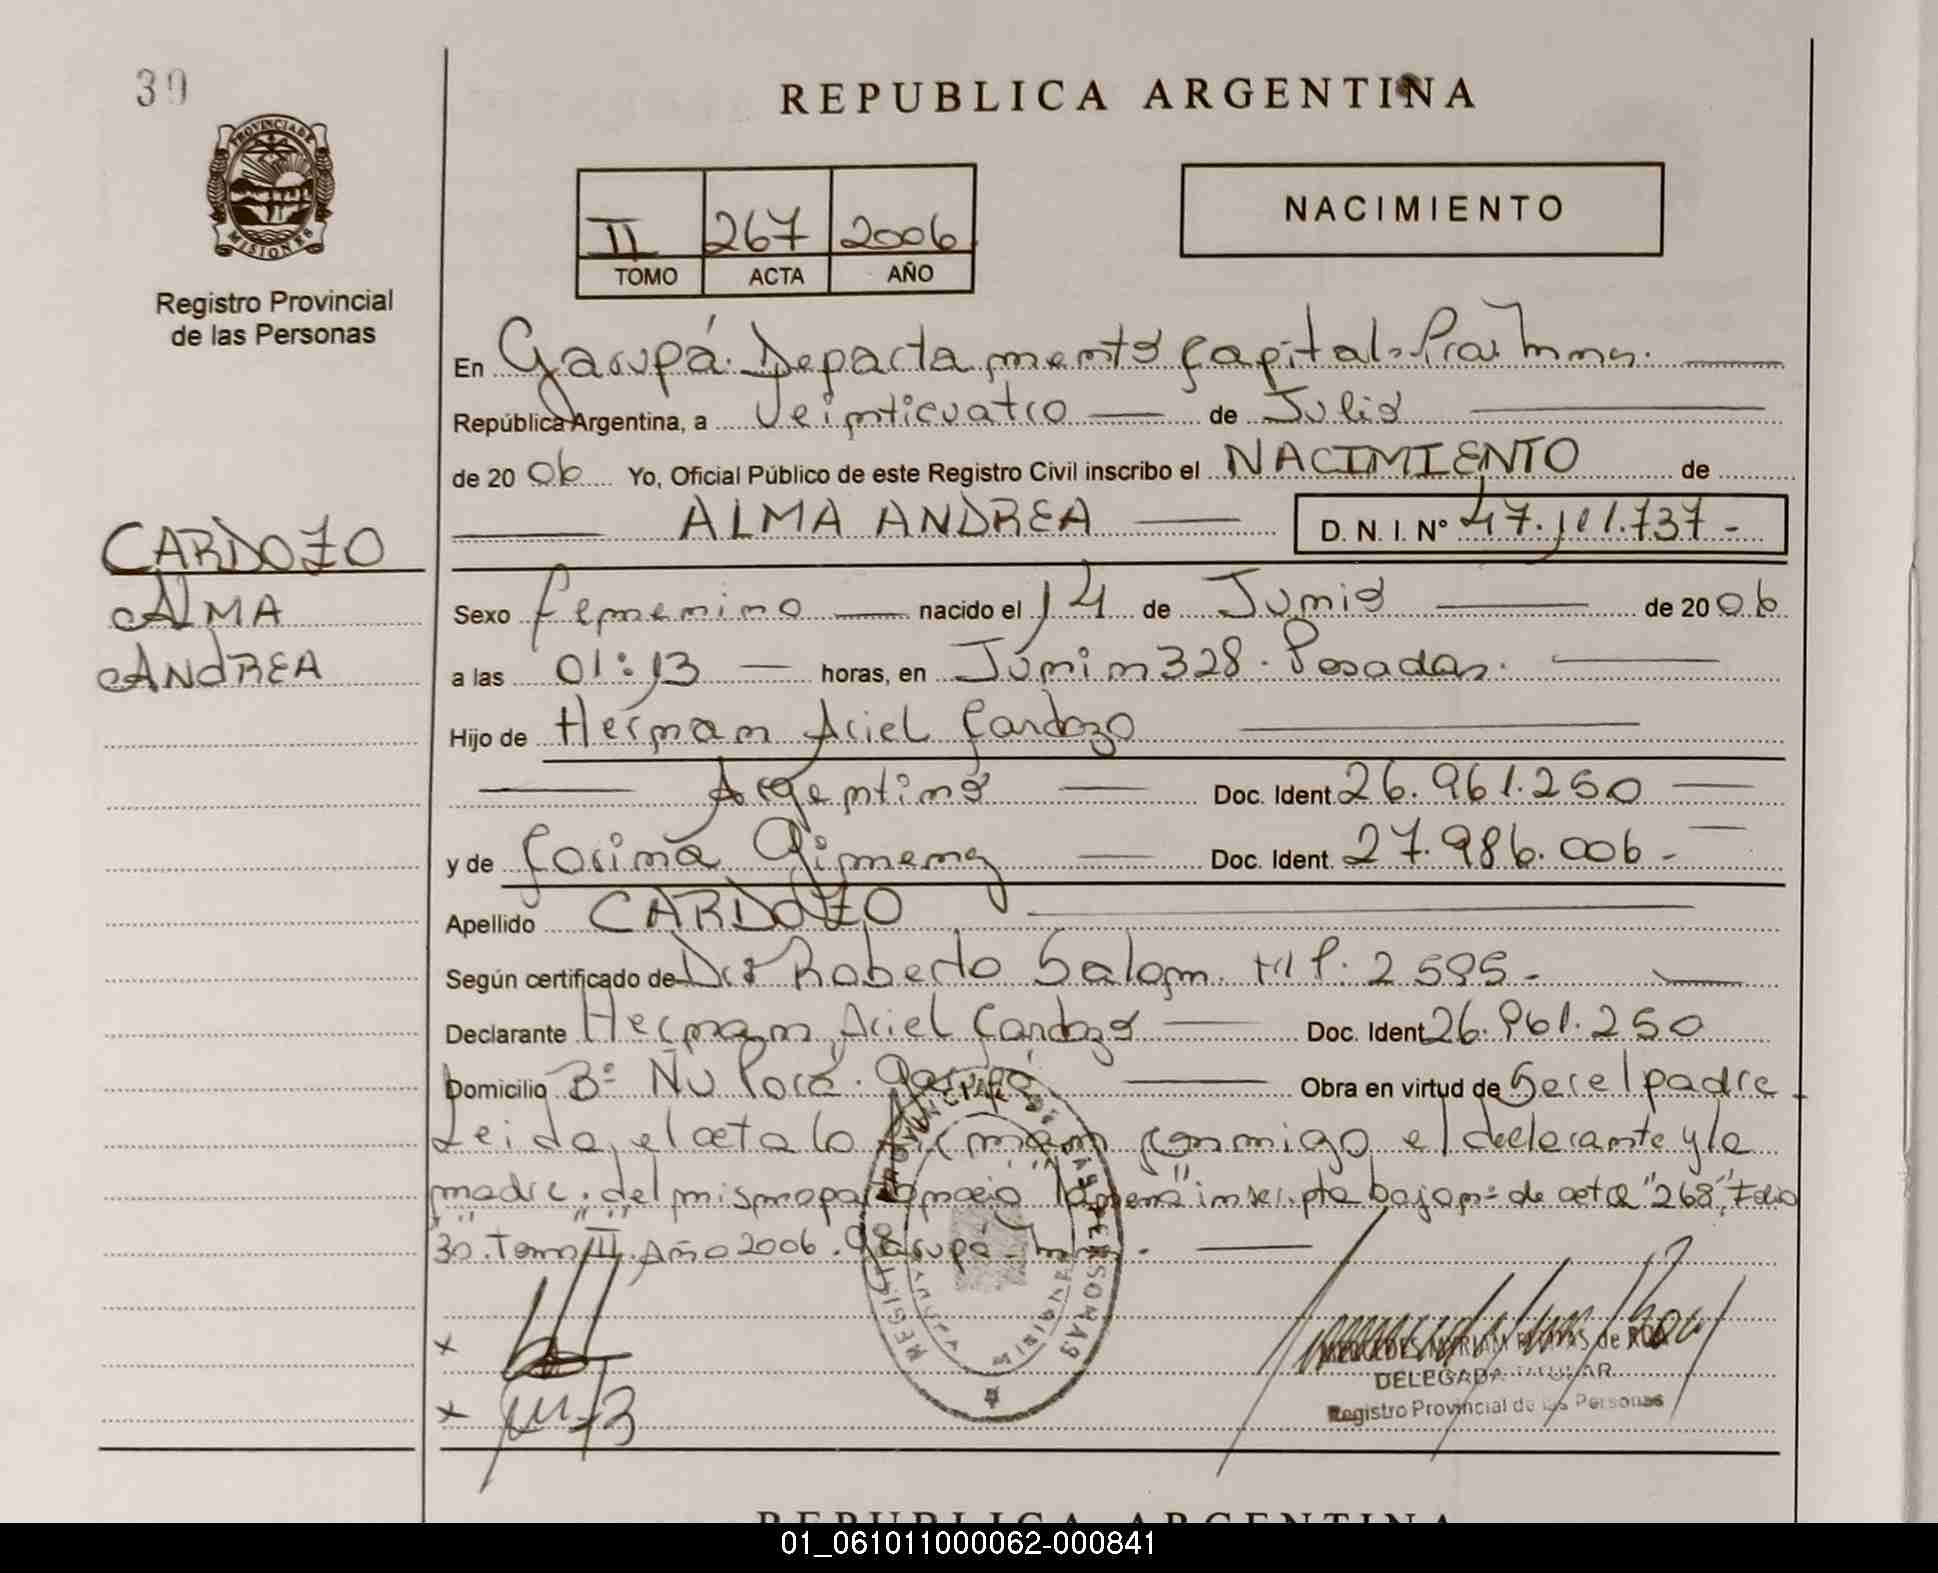 30
REPUBLICA ARGENTINA
PROVINCIA DE
MISIONES
Registro Provincial
de las Personas
II 267 2006
TOMO ACTA AÑO
NACIMIENTO
En Garupá. Departamento Capital. Pcia. Mnes.
República Argentina, a Veinticuatro de Julio
de 20 06 Yo, Oficial Público de este Registro Civil inscribo el NACIMIENTO de
ALMA ANDREA D. N. I. N° 47.111.737-
CARDOZO
ALMA
ANDREA
Sexo femenino nacido el 14 de Junio de 20 06
a las 01:13 horas, en Junin 328. Posadas.
Hijo de Hernan Ariel Cardozo
Argentino Doc. Ident. 26.961.250
y de Corina Gimenez Doc. Ident. 27.986.006-
Apellido CARDOZO
Según certificado de Dr Roberto Salom. M P. 2595-
Declarante Hernan Ariel Cardozo Doc. Ident. 26.961.250
Domicilio B° Ñu Porá. Garupá Obra en virtud de Ser el padre
Leida el acta la firman conmigo el declarante y la
madre. del mismo parto nació inscripta bajo n° de acta "268", Folio
"30". Tomo "II". Año 2006. Garupá - Mnes.
DELEGADA TITULAR
Registro Provincial de las Personas
REPUBLICA ARGENTINA
01_061011000062-000841